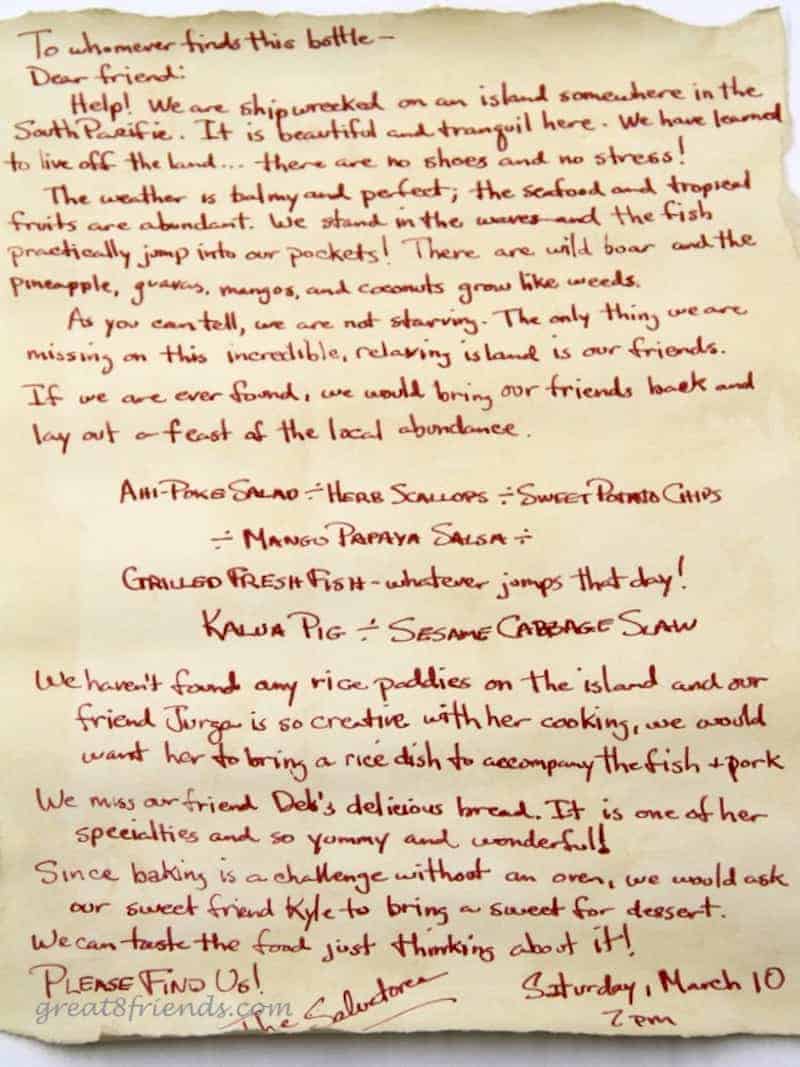 To whomever finds this bottle-
Dear friend:
Help! We are shipwrecked on an island somewhere in the
South Pacific. It is beautiful and tranquil here. We have learned
to live off the land... there are no shoes and no stress!
The weather is balmy and perfect; the seafood and tropical
fruits are abundant. We stand in the waves and the fish
practically jump into our pockets! There are wild boar and the
pineapple, guavas, mangos, and coconuts grow like weeds.
As you can tell, we are not starving. The only thing we are
missing on this incredible, relaxing island is our friends.
If we are ever found, we would bring our friends back and
lay out a feast of the local abundance.
AHI-POKE SALAD ÷ HERB SCALLOPS ÷ SWEET POTATO CHIPS
÷ MANGO PAPAYA SALSA ÷
GRILLED FRESH FISH - whatever jumps that day!
KALUA PIG ÷ SESAME CABBAGE SLAW
We haven't found any rice paddies on the island and our
friend Jurga is so creative with her cooking, we would
want her to bring a rice dish to accompany the fish + pork
We miss our friend Deb's delicious bread. It is one of her
specialties and so yummy and wonderful!
Since baking is a challenge without an oven, we would ask
our sweet friend Kyle to bring a sweet for dessert.
We can taste the food just thinking about it!
PLEASE FIND US!
The Salvatores
Saturday, March 10
7 pm
great8friends.com